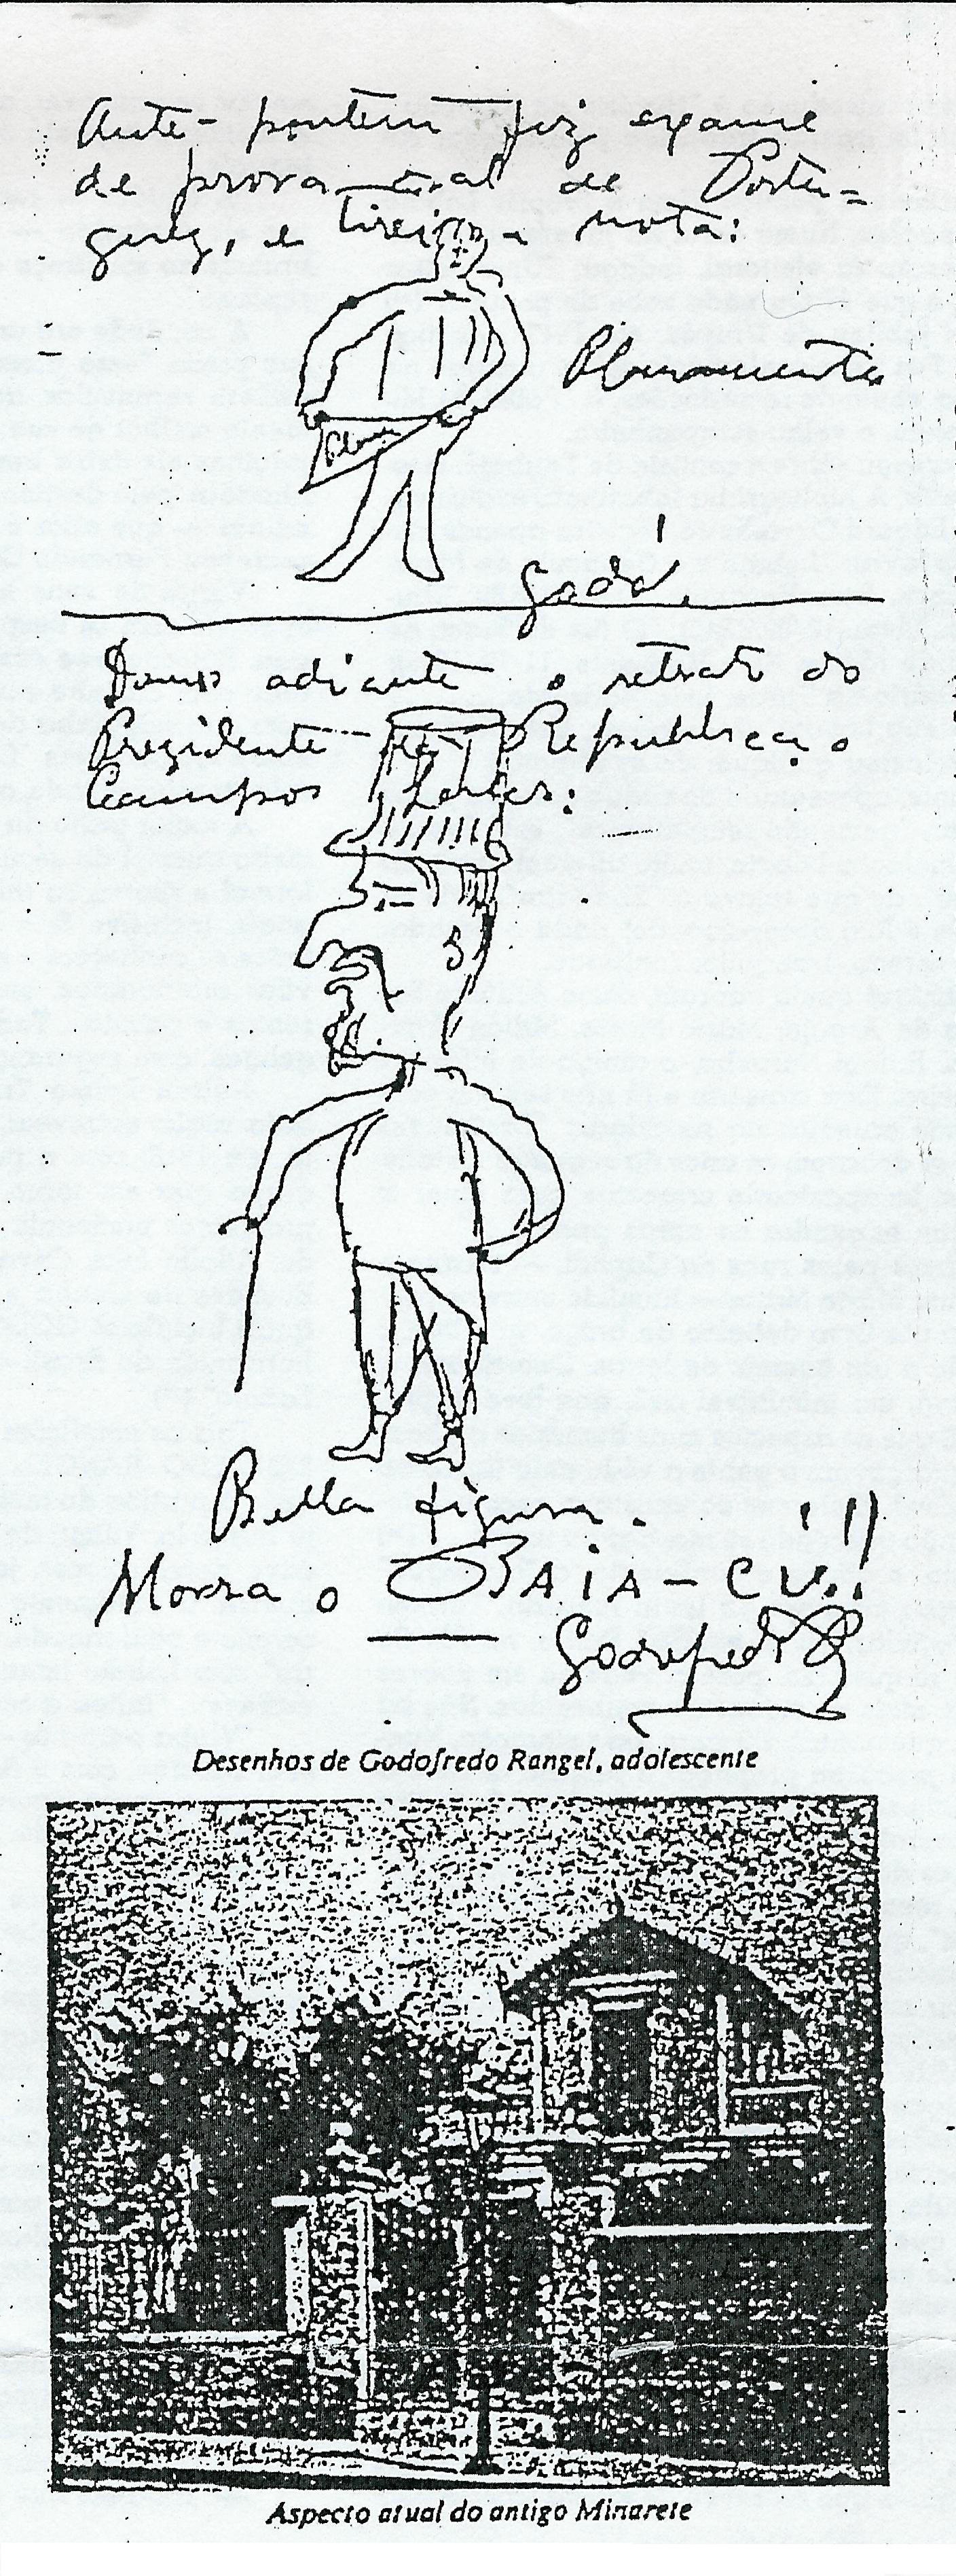 Ante-hontem fiz exame
de prova oral de Portu-
guez, e tirei a nota:
Plenamente
Plena
Godó.
Damos adiante o retrato do
Prezidente da Republica, o
Campos Salles:
Bella figura.
Morra o BAIA-CU!!!
Godofredo R
Desenhos de Godofredo Rangel, adolescente
Aspecto atual do antigo Minarete